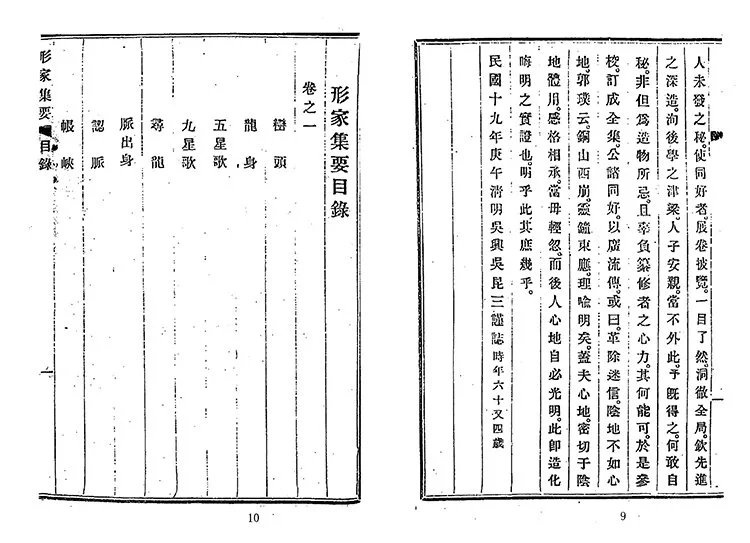 人未發之秘。使同好者。展卷披覽。一目了然。洞徹全局。欽先進
之深造。洵後學之津梁。人子安親。當不外此。予既得之。何敢自
秘。非但為造物所忌。且辜負纂修者之心力。其何能可。於是參
校。訂成全集。公諸同好。以廣流傳。或曰。革除迷信。陰地不如心
地。郭璞云。銅山西崩。靈鐘東應。理喩明矣。蓋夫心地。密切于陰
地體用。感格相承。當毋輕忽。而後人心地自必光明。此卽造化
晦明之實證也。明乎此其庶幾乎。
民國十九年庚午清明吳興吳昆三謹誌時年六十又四歲
一
9
形家集要目錄
卷之一
巒頭
龍身
五星歌
九星歌
尋龍
脈出身
認脈
帳峽
形家集要 目錄
一
10